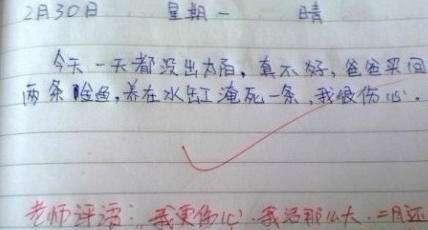 2月30日 星期一 晴
今天一天都没出太阳,真不好,爸爸买回
两条金鱼,养在水缸淹死一条,我很伤心.
老师评语:我更伤心.我活那么大.二月还